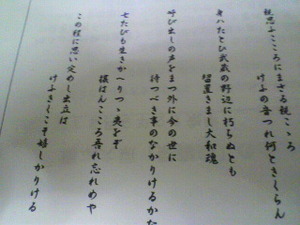 親思ふこころにまさる親こゝろ
けふの音つれ何ときくらん
身ハたとひ武蔵の野辺に朽ちぬとも
留置きまし大和魂
呼び出しの声をまつ外に今の世に
待つべき事のなかりけるかな
七たびも生きかへりつゝ夷をぞ
攘はんこころ吾れ忘れめや
この程に思い定めし出立は
けふきくこそ嬉しかりける